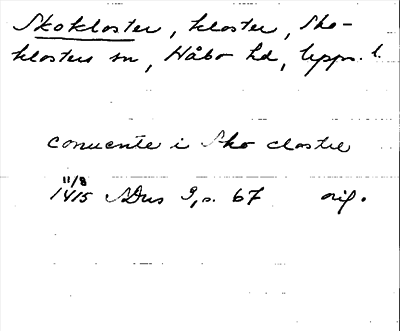 Skokloster, kloster, Sko-
klosters sn, Håbo hd, Upps. l.
conuente i Sko clostre
11/8
1415 SDns 3, s. 67 orig.